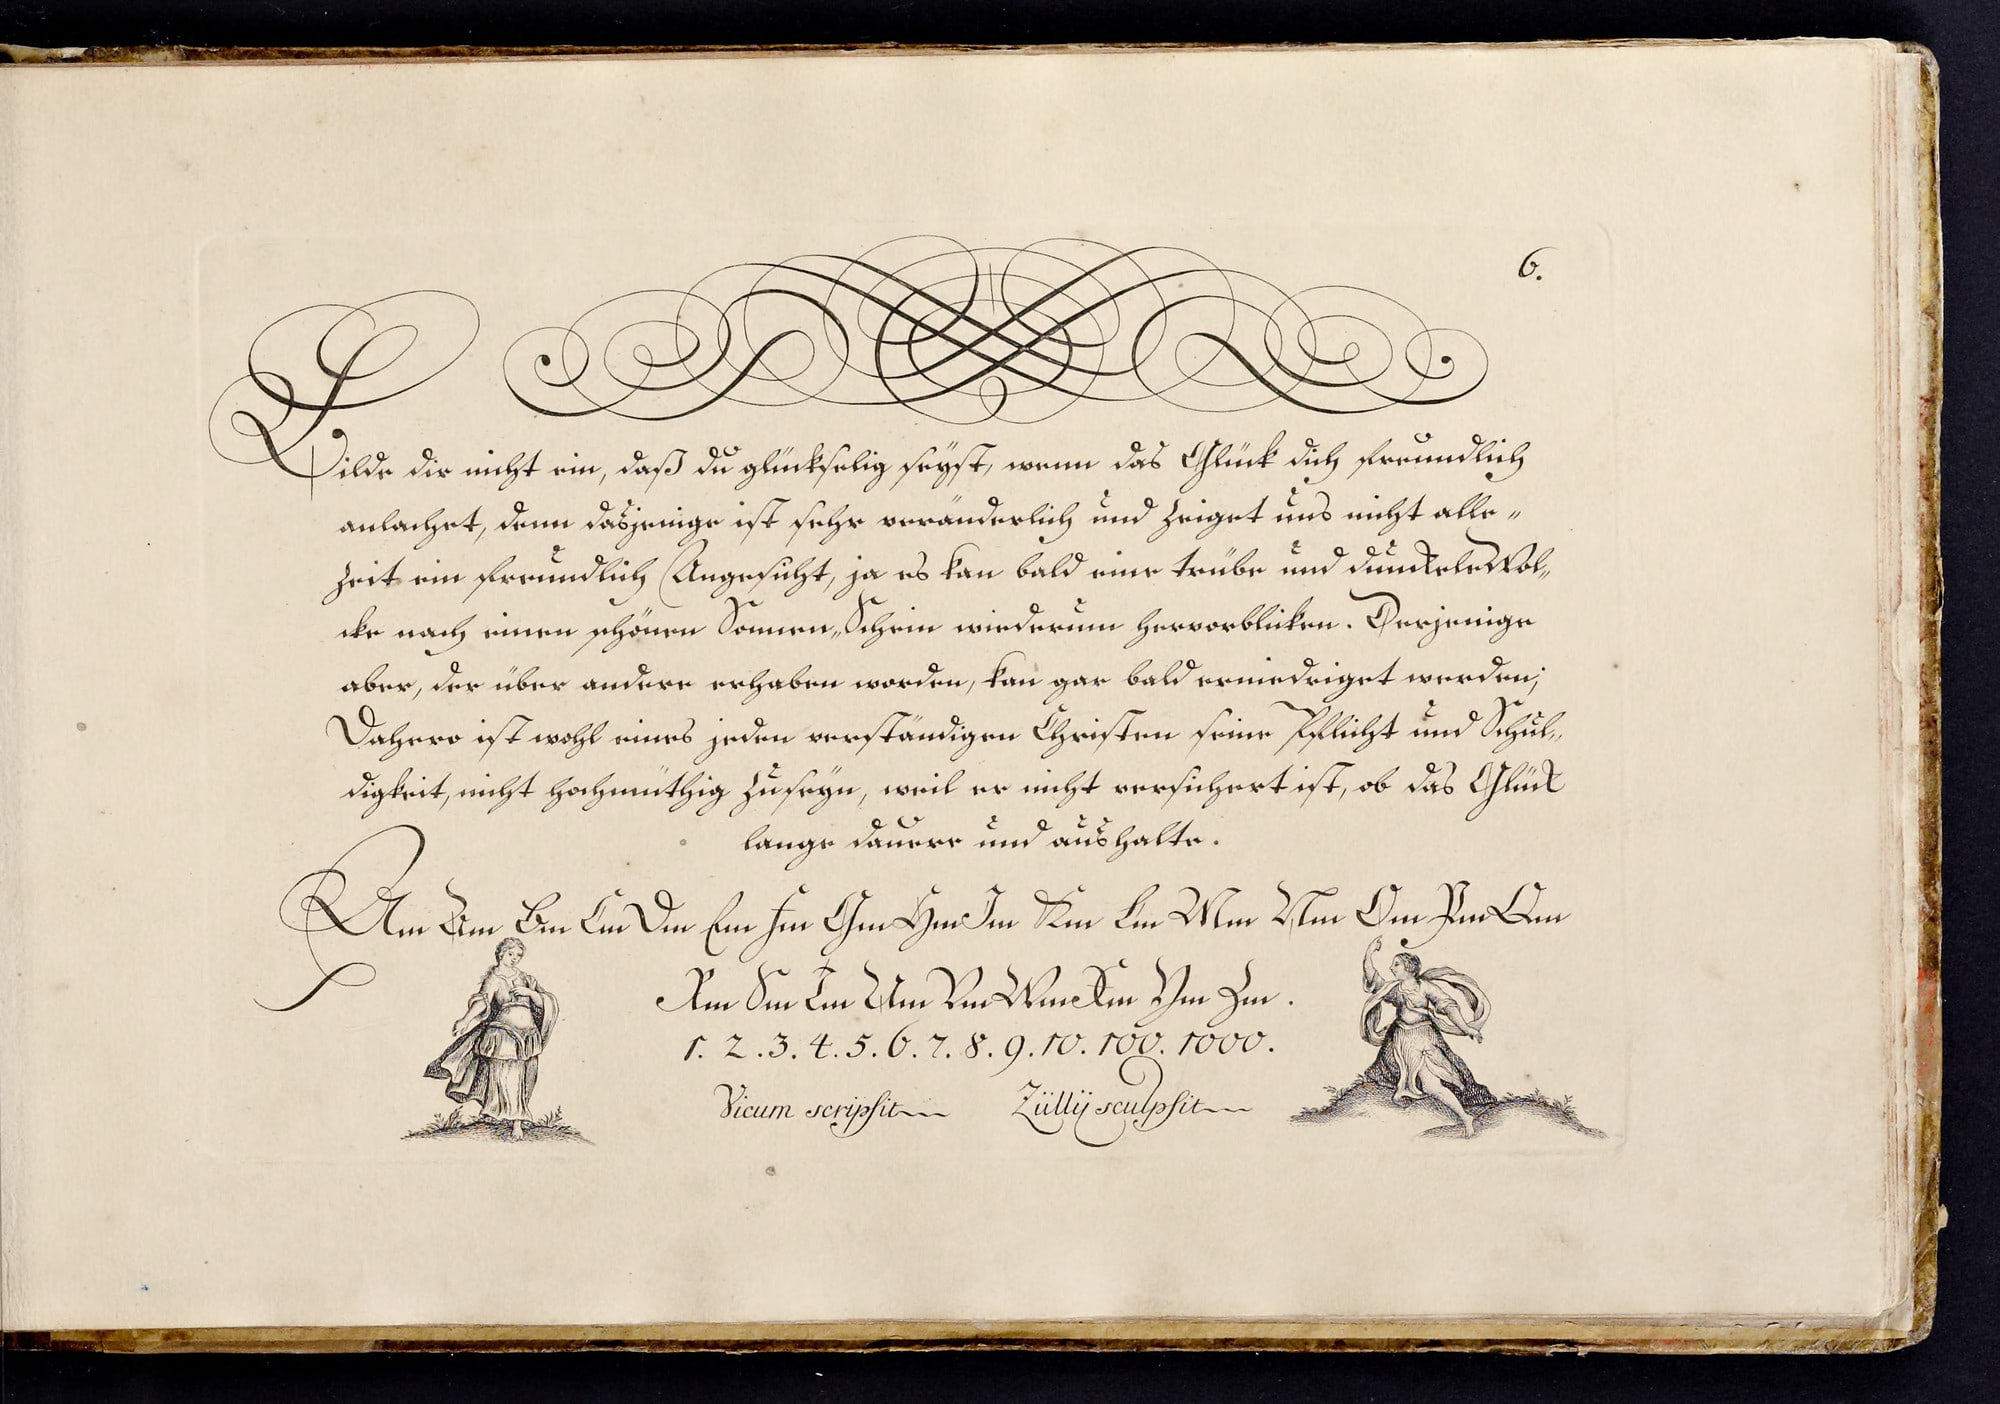 6.
Bilde dir nicht ein, daß du glückselig seyst, wenn das Glück dich freundlich
anlachet, denn dasjenige ist sehr veränderlich und zeiget uns nicht alle„
zeit ein freundlich Angesicht, ja es kan bald eine trübe und dunckele Wol„
cke nach einen schönen Sonnen„Schein wiederum hervorblicken. Derjenige
aber, der über andere erhaben worden, kan gar bald erniedriget werden;
Dahero ist wohl eines jeden verständigen Christen seine Pflicht und Schul„
digkeit, nicht hochmüthig zu seyn, weil er nicht versichert ist, ob das Glück
lange dauere und aushalte.
Am Am Bm Cm Dm Em Fm Gm Hm Im Km Lm Mm Nm Om Pm Qm
Rm Sm Tm Um Vm Wm Xm Ym Zm.
1. 2. 3. 4. 5. 6. 7. 8. 9. 10. 100. 1000.
Vicum scripsit Züllÿ sculpsit